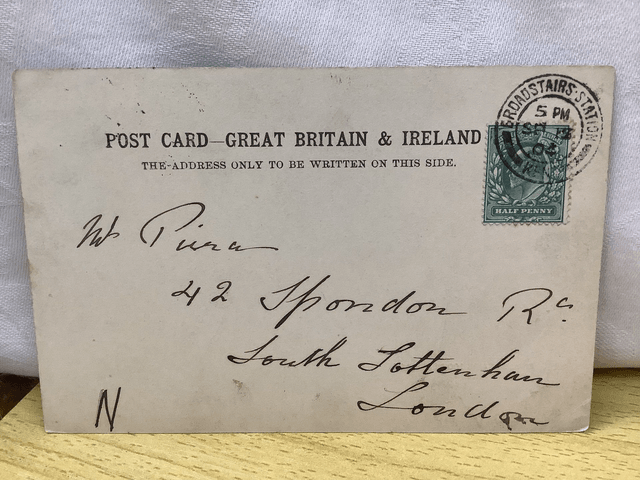 POST CARD—GREAT BRITAIN & IRELAND
THE ADDRESS ONLY TO BE WRITTEN ON THIS SIDE.
BROADSTAIRS·STATION
5 PM
SP 12
04
HALF PENNY
Mr
42 Spondon Rd
South Tottenham
London
N